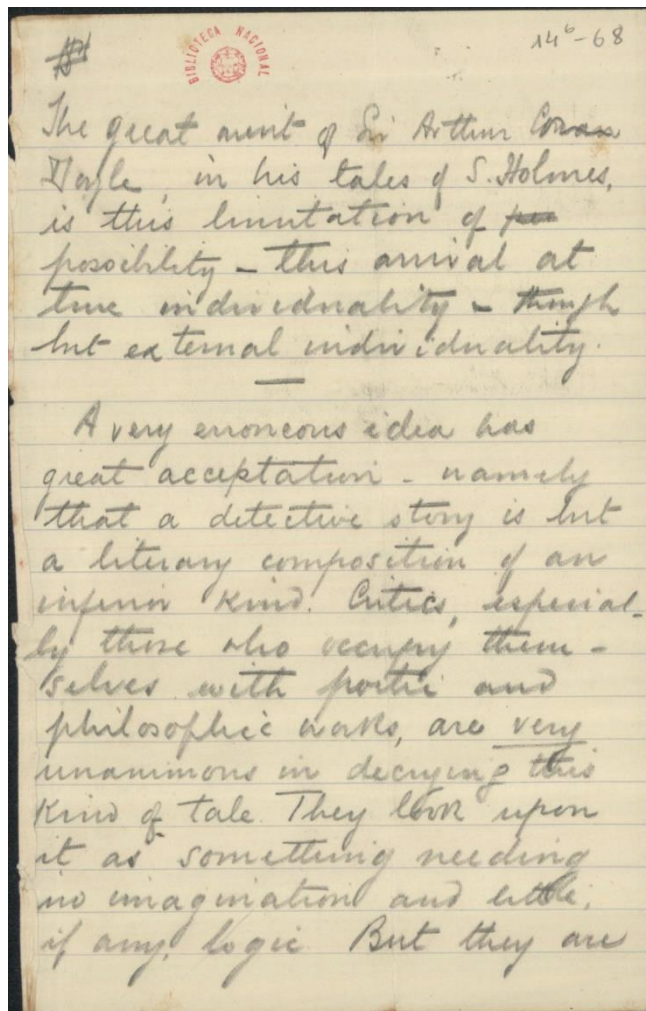 14⁶-68
BIBLIOTECA NACIONAL
The great merit of Sir Arthur Conan
Doyle, in his tales of S. Holmes,
is this limitation of
possibility - this arrival at
true individuality - though
but external individuality.
A very erroneous idea has
great acceptation - namely
that a detective story is but
a literary composition of an
inferior kind. Critics, especial-
ly those who occupy them-
selves with poetic and
philosophic works, are very
unanimous in decrying this
kind of tale. They look upon
it as something needing
no imagination and little,
if any, logic. But they are